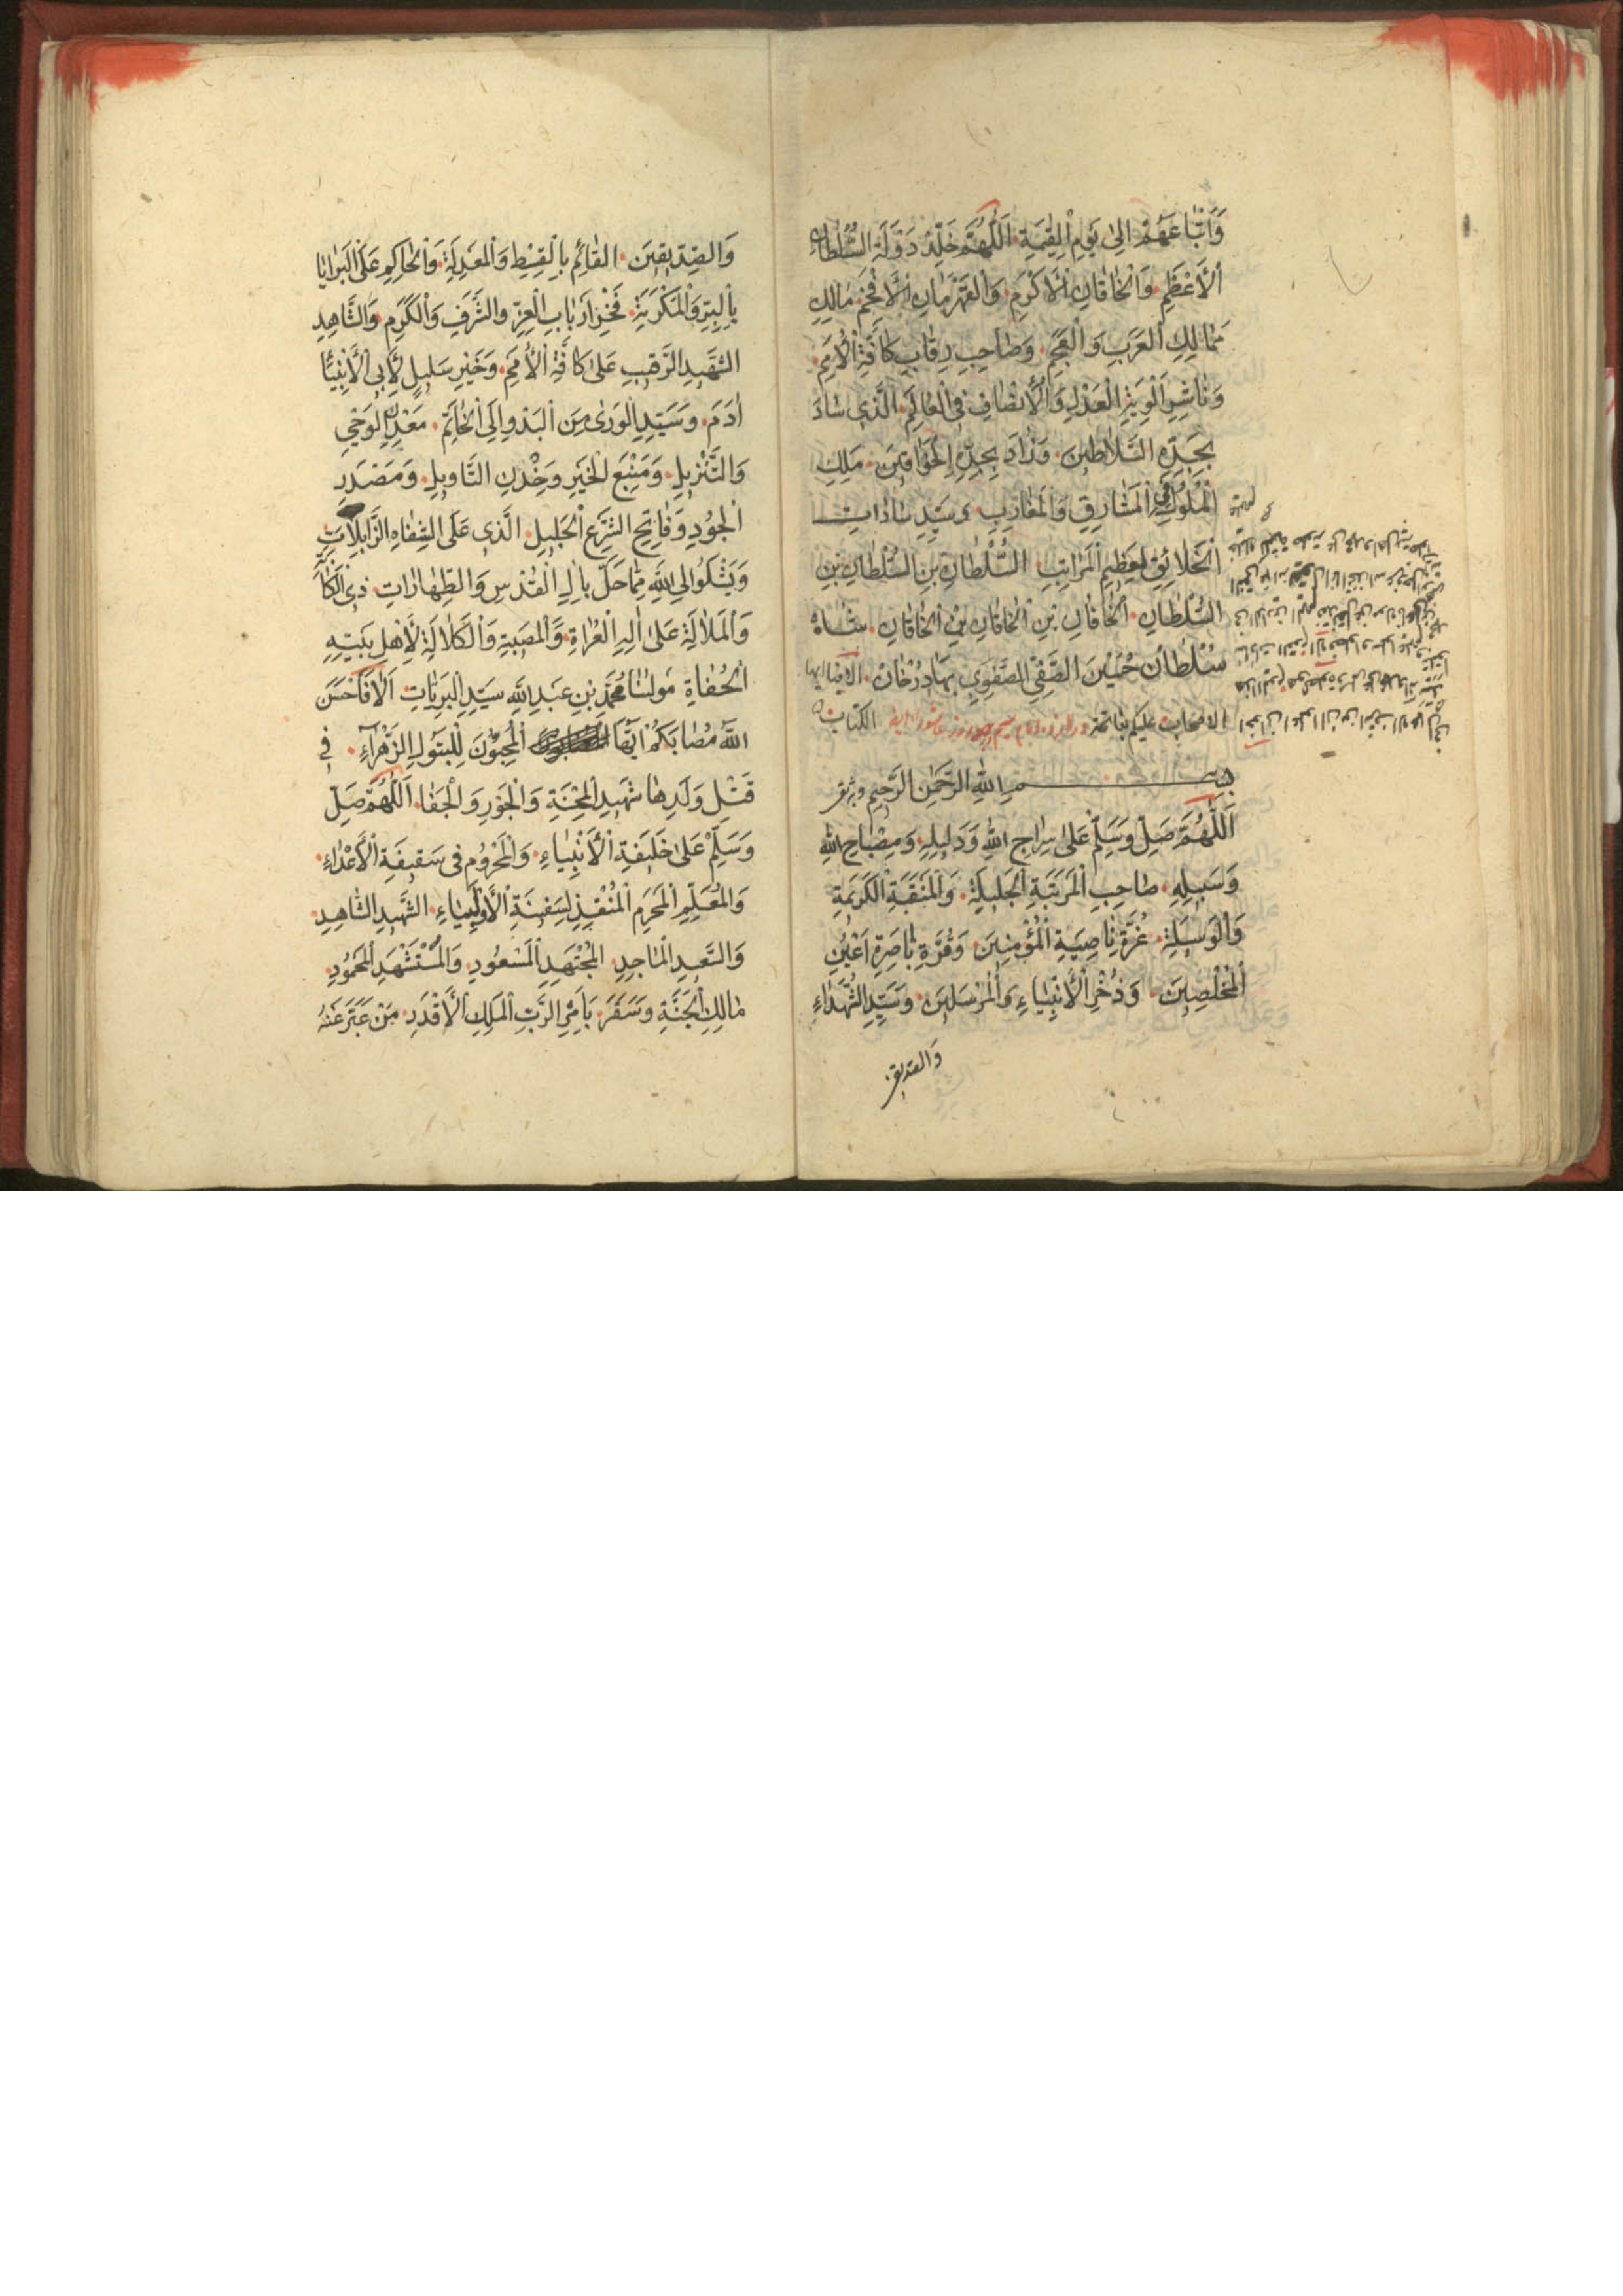 وَاَتْباعَهُمْ اِلىٰ يَوْمِ الْقِيٰمَةِ اَللّٰهُمَّ خَلِّدْ دَوْلَةَ السُّلْطانِ
الْاَعْظَمِ وَالْخاقانِ الْاَكْرَمِ وَالْقَهْرَمانِ الْاَفْخَمِ مالِكِ
مَمالِكِ الْعَرَبِ وَالْعَجَمِ وَصاحِبِ رِقابِ كافَّةِ الْاُمَمِ
وَناشِرِ اَلْوِيَةِ الْعَدْلِ وَالْاِنْصافِ فِى الْعالَمِ الَّذى سادَ
بِجَدِّهِ السَّلاطينَ وَزادَ بِجِدِّهِ الْخَواقينَ مَلِكِ
الْمُلُوكِ فِى الْمَشارِقِ وَالْمَغارِبِ وَسَيِّدِ ساداتِ
الْخَلائِقِ لِعَظيمِ الْمَراتِبِ السُّلْطانِ بْنِ السُّلْطانِ بْنِ
السُّلْطانِ الْخاقانِ بْنِ الْخاقانِ بْنِ الْخاقانِ شاه
سُلْطان حُسَيْنَ الصَّفِىِّ الصَّفَوِىِّ بَهادُرْخانْ الا فيا ايها
الاصحاب عليكم بفاتحة الكتاب
بِسْمِ اللهِ الرَّحْمٰنِ الرَّحيمِ
اَللّٰهُمَّ صَلِّ وَسَلِّمْ عَلىٰ سِراجِ اللهِ وَدَليلِهِ وَمِصْباحِ اللهِ
وَسَبيلِهِ صاحِبِ الْمَرْتَبَةِ الْجَليلَةِ وَالْمَنْقَبَةِ الْكَريمَةِ
وَالْوَسيلَةِ غُرَّةِ ناصِيَةِ الْمُؤْمِنينَ وَقُرَّةِ باصِرَةِ اَعْيُنِ
الْمُخْلِصينَ وَذُخْرِ الْاَنْبِياءِ وَالْمُرْسَلينَ وَسَيِّدِ الشُّهَداءِ
وَالصديقين
وَالصِّدّيقينَ الْقائِمِ بِالْقِسْطِ وَالْمَعْدِلَةِ وَالْحاكِمِ عَلَى الْبَرايا
بِالْبِرِّ وَالْمَكْرَمَةِ فَخْرِ اَرْبابِ الْعِزِّ وَالشَّرَفِ وَالْكَرَمِ وَالشَّاهِدِ
الشَّهيدِ الرَّقيبِ عَلىٰ كافَّةِ الْاُمَمِ وَخَيْرِ سَليلٍ لِاَبِى الْاَنْبِيا
اٰدَمَ وَسَيِّدِ الْوَرىٰ مِنَ الْبَدْوِ اِلَى الْخاتَمِ مَعْدِنِ الْوَحْىِ
وَالتَّنْزيلِ وَمَنْبَعِ الْخَيْرِ وَخِدْنِ التَّاْويلِ وَمَصْدَرِ
الْجُودِ وَفاتِحِ الشَّرْعِ الْجَليلِ الَّذى عَلَى الشِّفاهِ الذَّابِلاتِ
وَيَشْكُوا اِلَى اللهِ مِمَّا حَلَّ بِاٰلِ الْقُدْسِ وَالطَّهاراتِ ذِى الْكَاٰبَةِ
وَالْمَلالَةِ عَلىٰ اٰلِهِ الْعُراةِ وَالْمُصيبَةِ وَالْكَلالَةِ لِاَهْلِ بَيْتِهِ
الْحُفاةِ مَولٰنا مُحَمَّدِ بْنِ عَبْدِ اللهِ سَيِّدِ الْبَرِيَّاتِ اَلا فَاَحْسَنَ
اللهُ مُصابَكُمْ اَيُّهَا الْمُحِبُّونَ لِلْبَتُولِ الزَّهْراءِ فى
قَتْلِ وَلَدِها شَهيدِ الْمِحْنَةِ وَالْجَوْرِ وَالْجَفا اَللّٰهُمَّ صَلِّ
وَسَلِّمْ عَلىٰ خَليفَةِ الْاَنْبِياءِ وَالْمَحْرُومِ فى سَقيفَةِ الْاَعْداءِ
وَالْمُعَلِّمِ الْمَحْرَمِ الْمُنْقِذِ لِسَفينَةِ الْاَوْلِياءِ الشَّهيدِ الشَّاهِدِ
وَالسَّعيدِ الْماجِدِ الْمُجْتَهِدِ الْمَسْعُودِ وَالْمُسْتَشْهَدِ الْمَحْمُودِ
مالِكِ الْجَنَّةِ وَسَقَرَ بِاَمْرِ الرَّبِّ الْمَلِكِ الْاَقْدَرِ مَنْ عَبَّرَ عَنْهُ